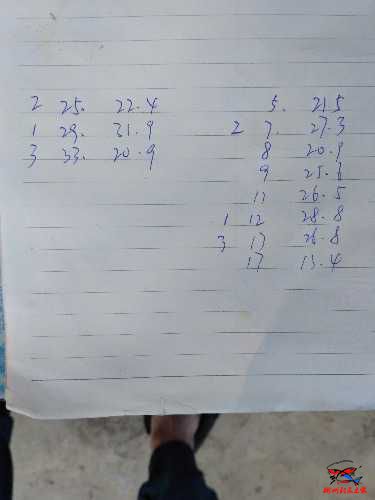 2 25. 22.4
1 29. 31.9
3 33. 20.9
5. 21.5
2 7. 27.3
8 20.9
9 25.6
11 26.5
1 12 28.8
3 17 26.8
17 13.4